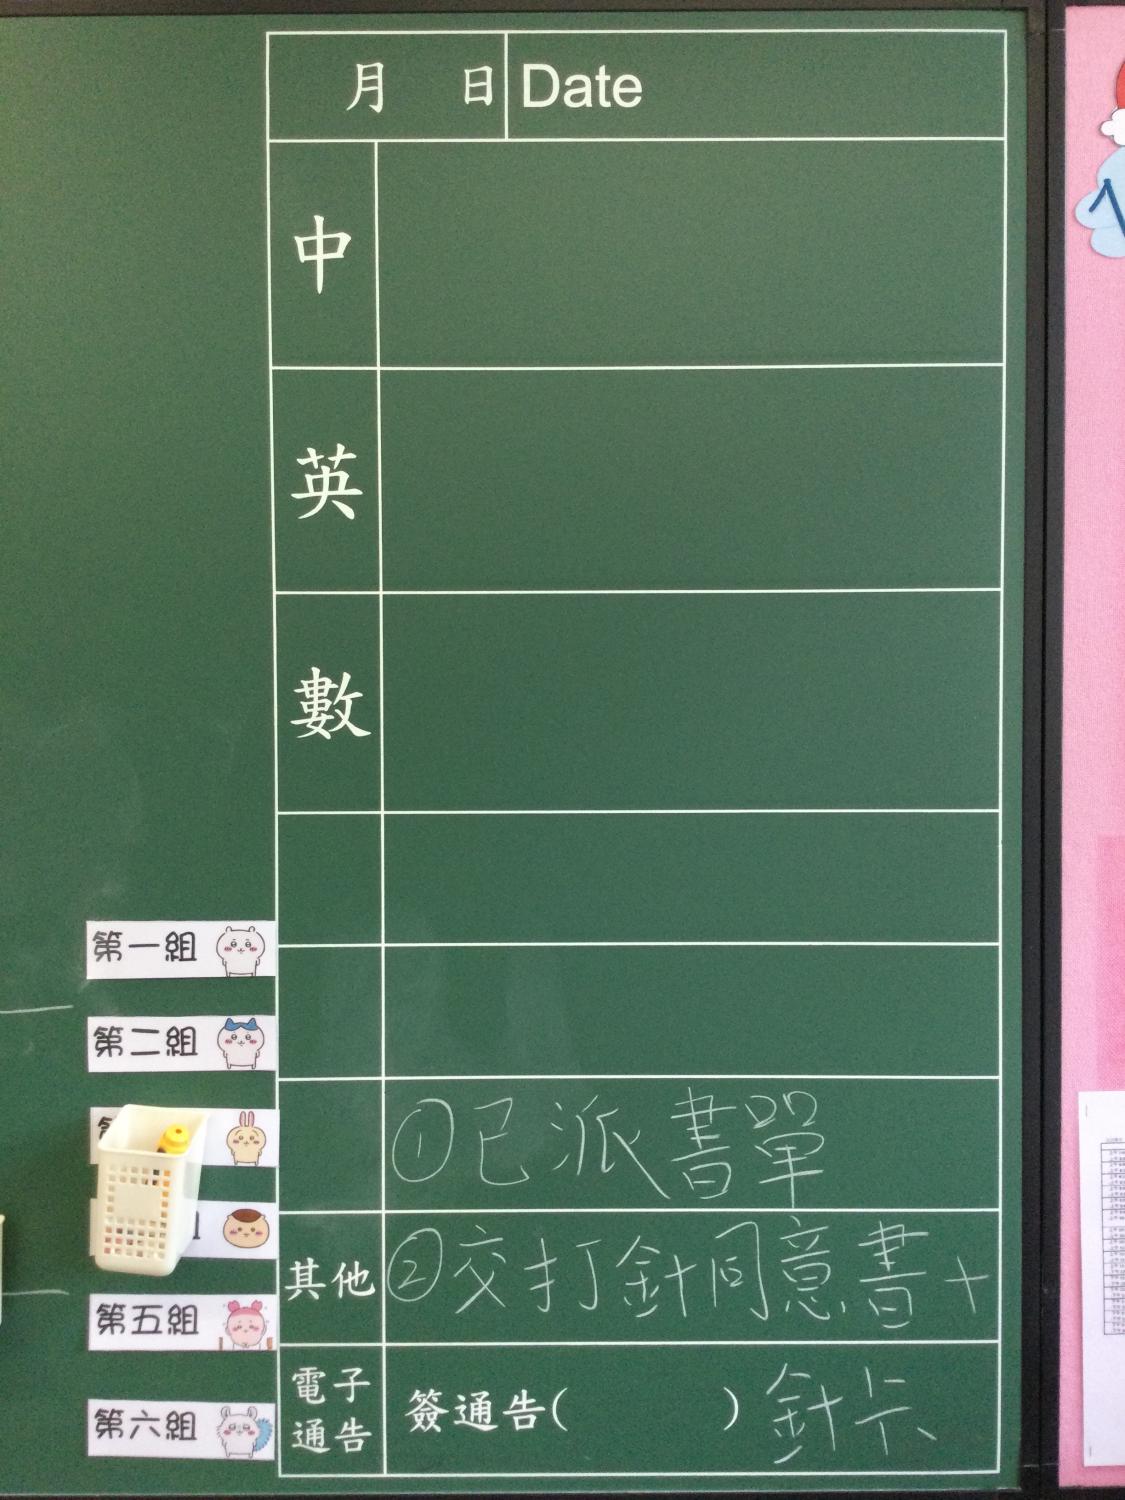 月 日 Date
中
英
數
第一組
第二組
①已派書單
其他 ②交打針同意書+
針卡
第五組
電子通告 簽通告( )
第六組